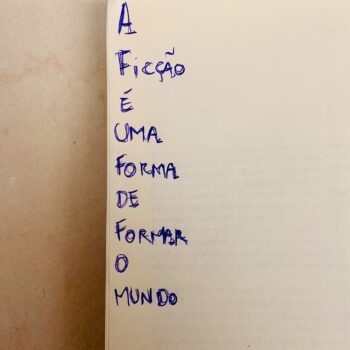 A
FICÇÃO
É
UMA
FORMA
DE
FORMAR
O
MUNDO